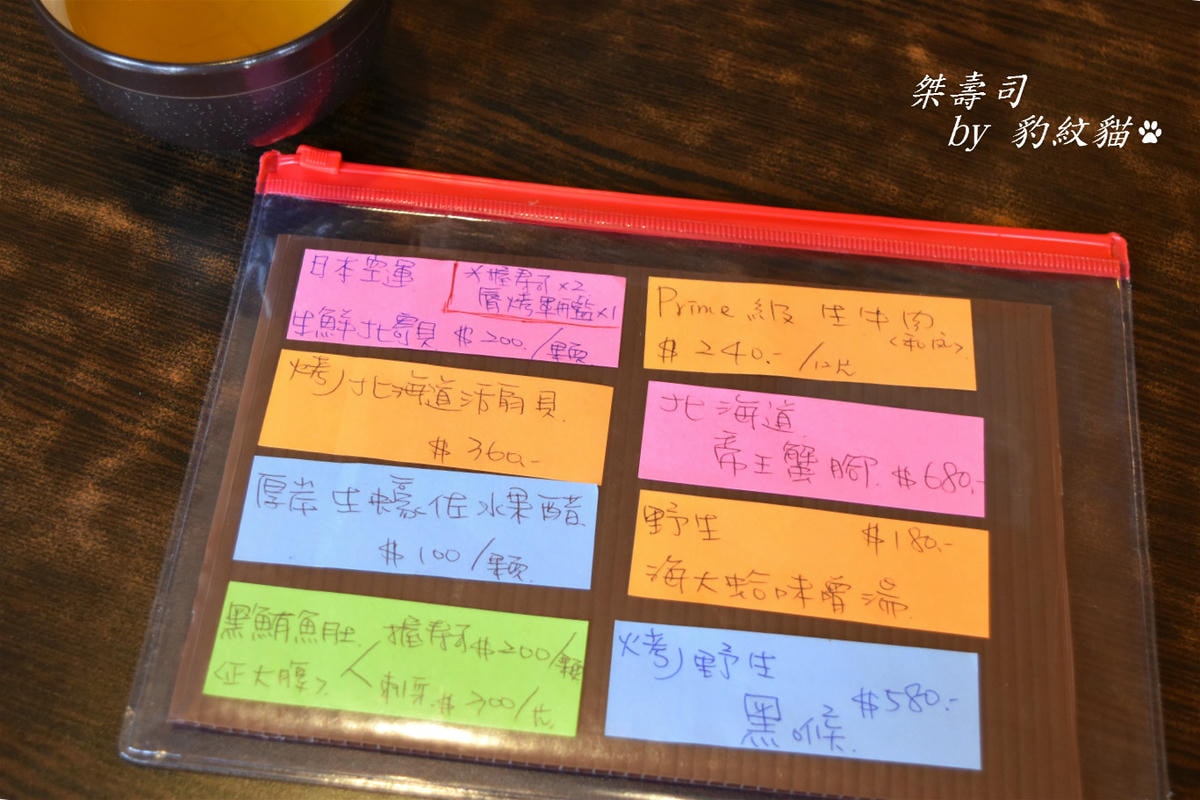 桀壽司
by 豹紋貓
日本空運
握壽司 x2
唇烤 x1
生鮮北寄貝 $200./顆
烤北海道活扇貝
$360.-
厚岸生蠔佐水果醋
$100/顆
黑鮪魚肚 握壽司 $200/顆
<正大腹> 刺身 $300/片
Prime 級 生牛肉
<和風>
$240.- /12片
北海道
帝王蟹腳 $680.-
野生 $180.-
海大蛤味噌湯
烤野生
黑喉 $580.-